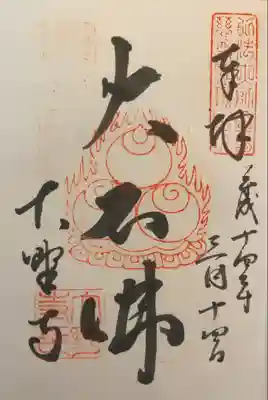 奉拝
平成十四年
三月十四日
大石佛
大野寺